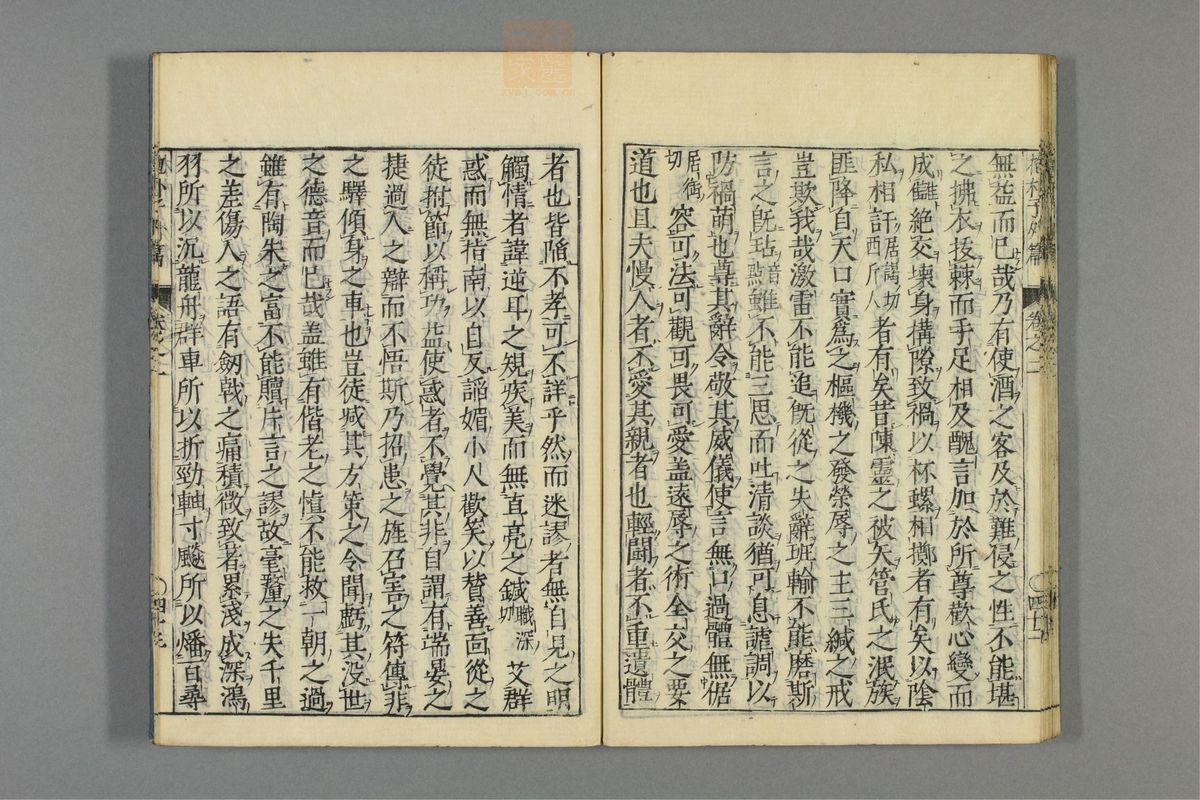 無益而已哉乃有使酒之客及於難侵之性不能堪
之拂衣拔棘而手足相及醜言加於所尊歡心變而
成讎絕交壞身搆隙致禍以杯螺相擲者有矣以陰
私相訐居謁切西所人者有矣昔陳靈之被矢管氏之泯族
匪降自天口實爲之樞機之發榮辱之主三緘之戒
豈欺我哉激雷不能追旣從之失辭班輸不能磨斯
言之旣玷音點雖不能三思而吐清談猶可息謔調以
防禍萌也尊其辭令敬其威儀使言無口過體無倨
居御切容可法可觀可畏可愛盖遠辱之術全交之要
道也且夫慢人者不愛其親者也輕鬭者不重遺體
者也皆陷不孝可不詳乎然而迷謬者無自見之明
觸情者諱逆耳之規疾美而無直亮之鍼職深切艾群
惑而無指南以自反謟媚小人歡笑以賛善面從之
徒拊節以稱功益使惑者不覺其非自謂有端晏之
捷過人之辯而不悟斯乃招患之旌召害之符傳非
之驛傾身之車也豈徒減其方策之令聞虧其没世
之德音而已哉盖雖有偕老之慎不能救一朝之過
雖有陶朱之富不能贖片言之謬故毫釐之失千里
之差傷人之語有劒戟之痛積微致著累淺成深鴻
羽所以沉龍舟群車所以折勁軸寸飈所以燔百尋